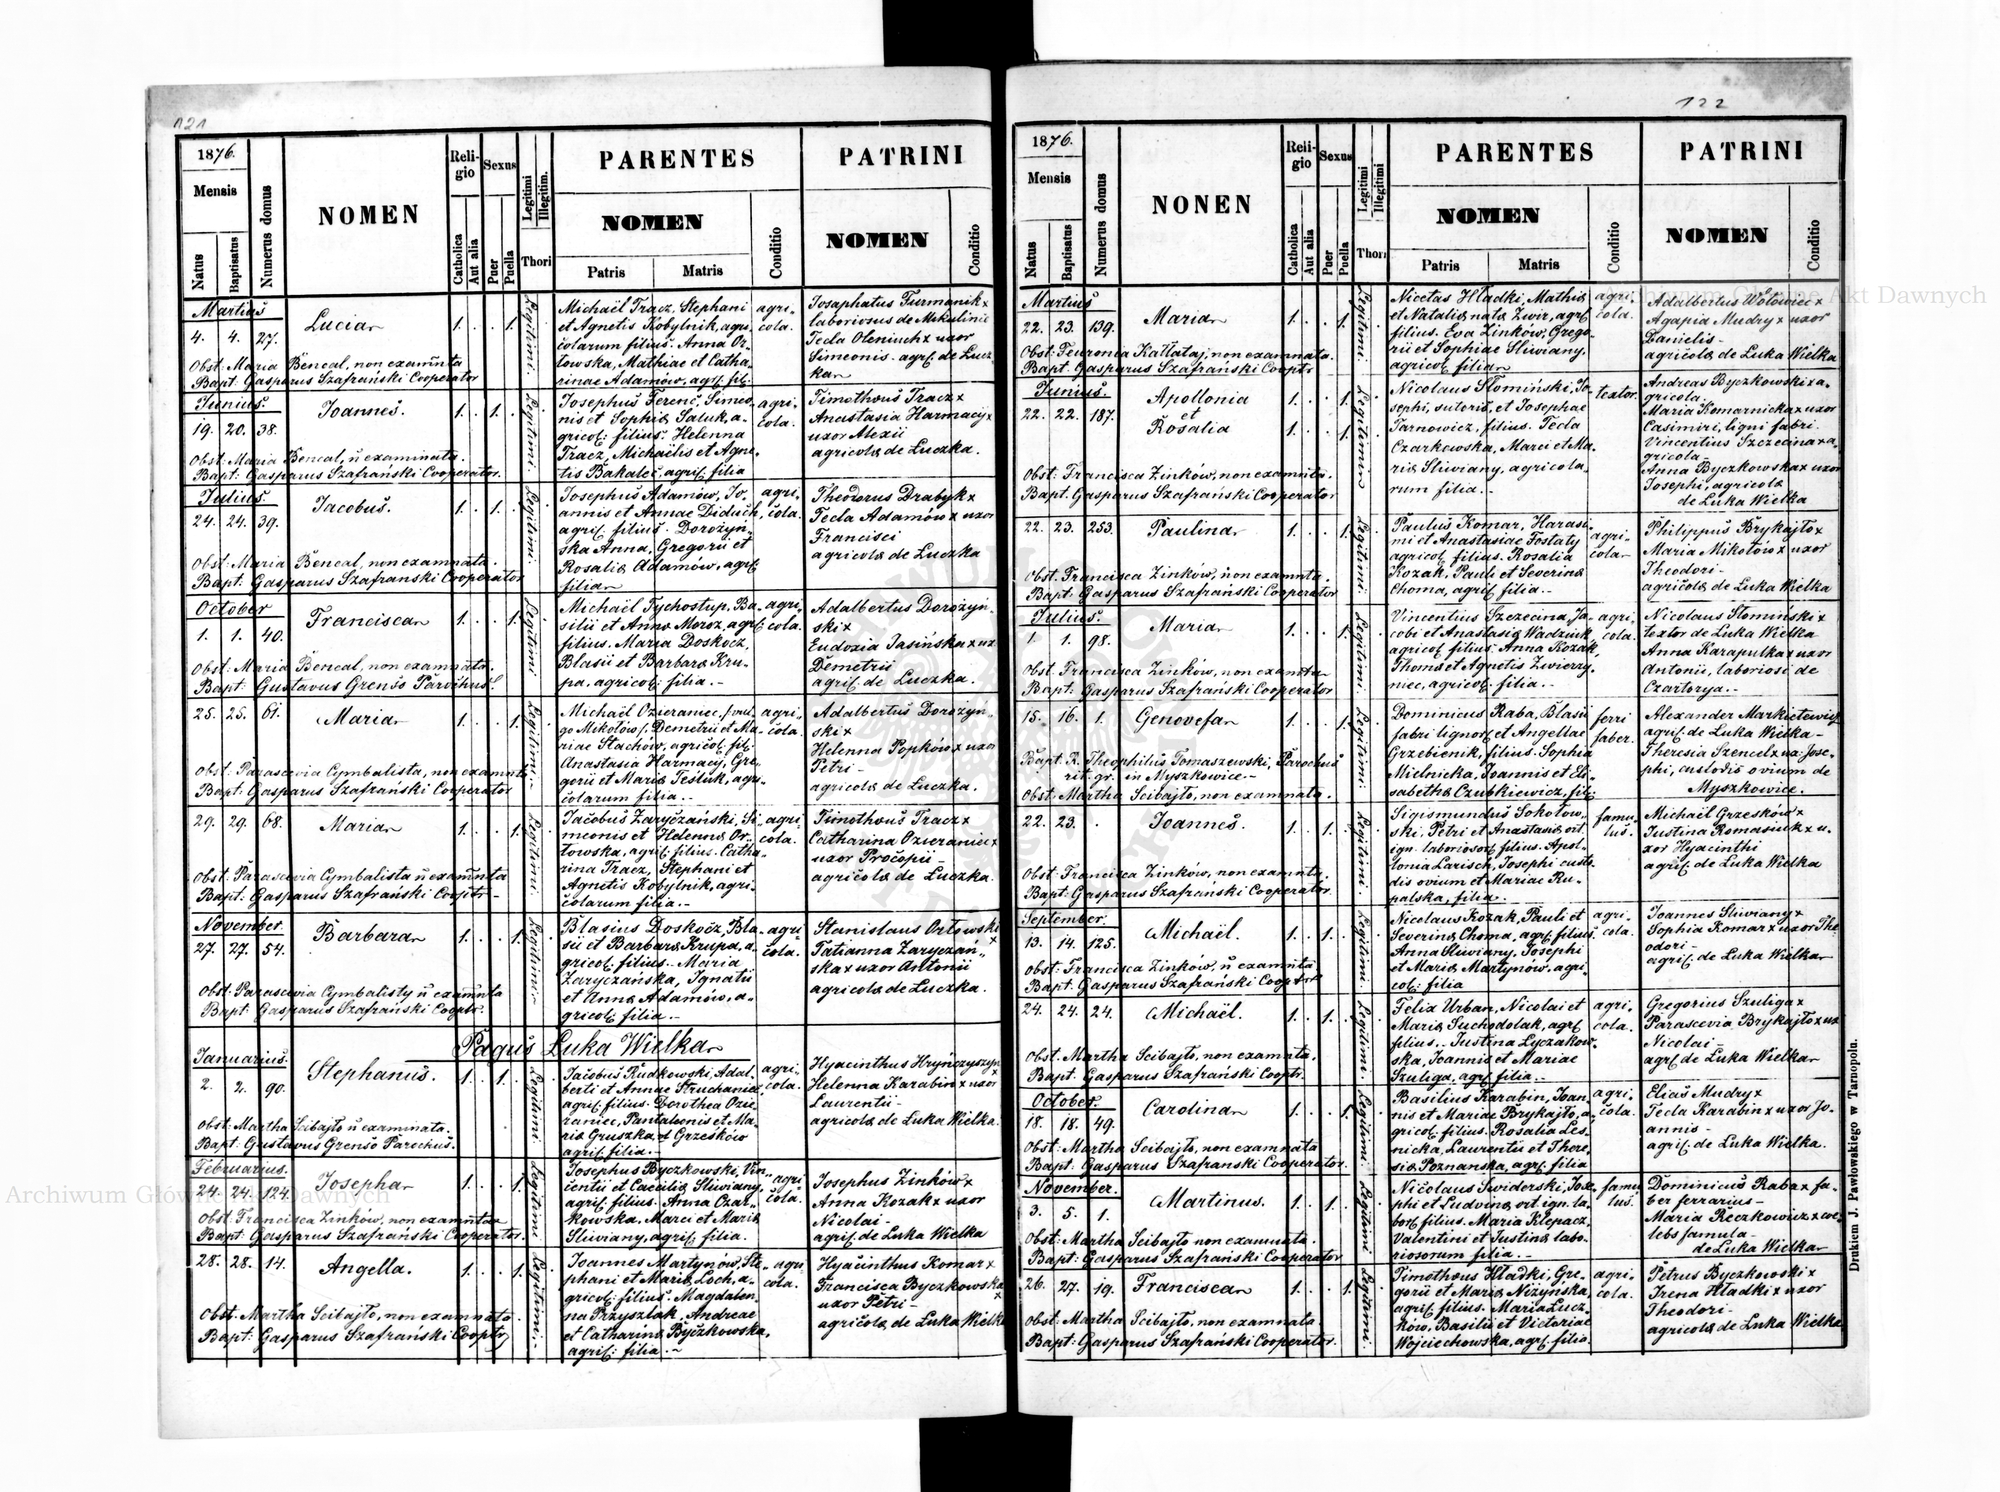 121
1876.
Mensis
Natus
Baptisatus
Numerus domus
NOMEN
Reli-
gio
Catholica
Aut alia
Sexus
Puer
Puella
Legitimi
Illegitim.
Thori
PARENTES
NOMEN
Patris
Matris
Conditio
PATRINI
NOMEN
Conditio
Martius
4. 4. 27.
Lucia
1. 1.
Legitimi
Michaël Tracz, Stephani
et Agnetis Kobylnik, agri-
colarum filius. Anna Or-
łowska, Mathiae et Catha-
rinae Adamów, agric. fil.
agri-
cola.
Josaphatus Furmanik x
laboriosus de Mikulińce
Tecla Oleniuch x uxor
Simeonis. agric. de Łucz-
ka
Obst: Maria Bencal, non examinta
Bapt: Gasparus Szafrański Cooperator
Junius.
19. 20. 38.
Joannes.
1. 1.
Legitimi
Josephus Ferenc, Simeo-
nis et Sophiæ Saluk, a-
gricol: filius. Helenna
Tracz, Michaëlis et Agne-
tis Bakalec, agric: filia
agri-
cola.
Timotheus Tracz x
Anastasia Harmacy x
uxor Alexii
agricolæ de Łuczka.
Obst: Maria Bencal, ñ examinata.
Bapt: Gasparus Szafrański Cooperator.
Julius.
24. 24. 39.
Jacobus.
1. 1.
Legitimi
Josephus Adamów, Jo-
annis et Annae Diduch,
agric. filius. Dorożyń-
ska Anna, Gregorii et
Rosaliæ Adamów, agric.
filia
agri-
cola.
Theodorus Drabyk x
Tecla Adamów x uxor
Francisci
agricolæ de Łuczka
Obst: Maria Bencal, non examinata.
Bapt: Gasparus Szafranski Cooperator
October
1. 1. 40.
Francisca
1. 1.
Legitimi
Michaël Tychostup, Ba-
silii et Annæ Moroz, agric.
filius. Maria Doskocz,
Blasii et Barbaræ Kru-
pa, agricol: filia.-
agri-
cola.
Adalbertus Dorożyn-
ski x
Eudoxia Jasińska x ux.
Demetrii
agric. de Łuczka.
Obst: Maria Bencal, non examinata.
Bapt: Gustavus Grenso Parochus.
25. 25. 61.
Maria
1. 1.
Legitimi
Michaël Ozieraniec, (vul-
go Mikołów), Demetrii et Ma-
riae Stachów, agricol. fil.
Anastasia Harmacij, Gre-
gorii et Mariæ Tesluk, agri-
colarum filia.-
agri-
cola.
Adalbertus Dorożyn-
ski x
Helenna Popków x uxor
Petri-
agricolæ de Łuczka.
Obst: Parascevia Cymbalista, non examinta
Bapt: Gasparus Szafrański Cooperator
29. 29. 68.
Maria
1. 1.
Legitimi
Jacobus Zaryczański, Si-
meonis et Helennæ Or-
łowska, agric. filius. Catha-
rina Tracz, Stephani et
Agnetis Kobylnik, agri-
colarum filia.-
agri-
cola.
Timotheus Tracz x
Catharina Ozieraniec x
uxor Procopii-
agricolæ de Łuczka.
Obst: Parascevia Cymbalista ñ examinta
Bapt: Gasparus Szafrański Cooptr-
November.
27. 27. 54.
Barbara
1. 1.
Legitimi
Blasius Doskocz, Bla-
sii et Barbaræ Krupa, a-
gricol. filius. Maria
Zaryczańska, Ignatii
et Annæ Adamów, a-
gricol. filia.-
agri-
cola.
Stanislaus Orłowski
x
Tatianna Zaryczań-
ska x uxor Antonii
agricolæ de Łuczka.
Obst: Parascevia Cymbalisty ñ examinta
Bapt: Gasparus Szafrański Cooptr.
Pagus Łuka Wielka
Januarius.
2. 2. 90.
Stephanus.
1. 1.
Legitimi
Jacobus Rudkowski, Adal-
berti et Annae Struchaniec,
agric. filius. Dorothea Ozie-
raniec, Pantaleonis et Ma-
riæ Gruszka, d Grzesków
agric. filia.-
agri-
cola.
Hyacinthus Hryńczyszyn
Helenna Karabin x uxor
Laurentii-
agricolæ de Łuka Wielka.
Obst: Martha Scibajło ñ examinata.
Bapt: Gustavus Grenso Parochus.
Februarius.
24. 24. 124.
Josepha
1. 1.
Legitimi
Josephus Byczkowski, Vin-
centii et Caeciliæ Sliwiany,
agric. filius. Anna Czar-
kowska, Marci et Mariæ
Sliwiany, agric. filia.
agri-
cola.
Josephus Zinków x
Anna Kozak x uxor
Nicolai-
agric. de Łuka Wielka
Obst: Francisca Zinków, non examinta
Bapt: Gasparus Szafrański Cooperator.
28. 28. 14.
Angella.
1. 1.
Legitimi
Joannes Martynów, Ste-
phani et Mariæ Loch, a-
gricol: filius. Magdalen-
na Przyszlak, Andreae
et Catharinæ Byczkowska,
agric: filia.~
agri-
cola.
Hyacinthus Komar x
Francisca Byczkowska
x
uxor Petri-
agricolæ, de Łuka Wielka
Obst: Martha Scibajło, non examinata.
Bapt: Gasparus Szafrański Cooptr
122
1876.
Mensis
Natus
Baptisatus
Numerus domus
NONEN
Reli-
gio
Catholica
Aut alia
Sexus
Puer
Puella
Legitimi
Illegitimi
Thori
PARENTES
NOMEN
Patris
Matris
Conditio
PATRINI
NOMEN
Conditio
Martius
22. 23. 139.
Maria
1. 1.
Legitimi
Nicetas Hładki, Mathiæ
et Nataliæ natæ Zwir, agric.
filius. Eva Zinków, Grego-
rii et Sophiae Sliwiany,
agricol. filia
agri-
cola.
Adalbertus Wołowiec x
Agapia Mudry x uxor
Danielis-
agricolæ de Łuka Wielka
Obst: Feuronia Kałłataj, non examinata.
Bapt: Gasparus Szafrański Cooptr
Junius.
22. 22. 187.
Apollonia
et
Rosalia
1. 1.
1. 1.
Legitimi
Nicolaus Słomiński, Jo-
sephi, sutoris, et Josephae
Tarnowicz, filius. Tecla
Czarkowska, Marci et Ma-
riæ Sliwiany, agricola-
rum filia.-
textor.
Andreas Byczkowski x a-
gricola.
Maria Komarnicka x uxor
Casimiri, ligni fabri.
Vincentius Szczecina x a-
gricola-
Anna Byczkowska x uxor
Josephi, agricolæ
de Łuka Wielka
Obst: Francisca Zinków, non examinta.
Bapt: Gasparus Szafrański Cooperator
22. 23. 253.
Paulina
1. 1.
Legitimi
Paulus Komar, Harasi-
mi et Anastasiae Tostaty
agricol. filius. Rosalia
Kozak, Pauli et Severinæ
Choma, agric. filia.-
agri-
cola-
Philippus Brykajło x
Maria Mikołów x uxor
Theodori-
agricolæ de Łuka Wielka
Obst: Francisca Zinków, non examinta.
Bapt: Gasparus Szafrański Cooperator
Julius.
1. 1. 98.
Maria
1. 1.
Legitimi
Vincentius Szczecina, Ja-
cobi et Anastasiæ Wadziuk,
agricol. filius. Anna Kozak,
Thomæ et Agnetis Zwierzy-
niec, agricol. filia.-
agri-
cola.
Nicolaus Słomiński x
textor de Łuka Wielka
Anna Karapulka x uxor
Antonii, laboriosi de
Czartorya.-
Obst: Francisca Zinków, non examinta-
Bapt: Gasparus Szafrański Cooperator
15. 16. 1.
Genovefa
1. 1.
Legitimi
Dominicus Raba, Blasii
fabri lignar. et Angellae
Grzebienik, filius. Sophia
Mielnicka, Joannis et Eli-
sabethæ Czubkiewicz, fil:
ferri
faber.
Alexander Markietewicz
agric. de Łuka Wielka-
Theresia Szencel x ux. Jose-
phi, custodis ovium de
Myszkowice.
Bapt. R. Theophilus Tomaszewski, Parochus
rit. gr. in Myszkowice-
Obst: Martha Scibajło, non examinata.
22. 23.
Joannes.
1. 1.
Legitimi
Sigismundus Sokołow-
ski, Petri et Anastasiæ ort.
ign. laborioror. filius. Apol-
lonia Larisch, Josephi custo-
dis ovium et Mariae Ru-
palska, filia.
famu-
lus.
Michaël Grzesków x
Justina Romaniuk x u-
xor Hyacinthi
agric. de Łuka Wielka
Obst: Francisca Zinków, non examinta.
Bapt: Gasparus Szafrański Cooperator.
September.
13. 14. 125.
Michaël.
1. 1.
Legitimi
Nicolaus Kozak, Pauli et
Severinæ Choma, agric. filius.
Anna Sliwiany, Josephi
et Mariæ Martynow, agri-
col: filia
agri-
cola.
Joannes Sliwiany x
Sophia Komar x uxor The-
odori-
agric. de Łuka Wielka
Obst: Francisca Zinków, ñ examinta
Bapt: Gasparus Szafrański Cooptr
24. 24. 24.
Michaël.
1. 1.
Legitimi
Felix Urban, Nicolai et
Mariæ Suchodolak, agric.
filius.. Justina Łyczakow-
ska, Joannis et Mariae
Szuliga, agric. filia.-
agri-
cola.
Gregorius Szuliga x
Parascevia Brykajło x ux.
Nicolai-
agric. de Łuka Wielka
Obst: Martha Scibajło, non examinta.
Bapt: Gasparus Szafrański Cooptr.
October.
18. 18. 49.
Carolina
1. 1.
Legitimi
Basilius Karabin, Joan-
nis et Mariae Brykajło, a-
gricol. filius. Rosalia Les-
nicka, Laurentii et There-
siæ Poznanska, agric. filia
agri-
cola.
Elias Mudry x
Tecla Karabin x uxor Jo-
annis-
agric. de Łuka Wielka.
Obst: Martha Scibajło, non examinata
Bapt: Gasparus Szafrański Cooperator.
November.
3. 5. 1.
Martinus.
1. 1.
Legitimi
Nicolaus Swiderski, Jose-
phi et Ludvinæ ort. ign. la-
bor. filius. Maria Klepacz,
Valentini et Justinæ labo-
riosorum filia.-
famu-
lus.
Dominicus Raba x fa-
ber ferrarius-
Maria Reczkowicz x coe-
lebs famula-
de Łuka Wielka
Obst: Martha Scibajło non examinata.
Bapt: Gasparus Szafrański Cooperator
26. 27. 19.
Francisca
1. 1.
Legitimi
Timotheus Hładki, Gre-
gorii et Mariæ Nizynska,
agric. filius. Maria Lucz-
ków, Basilii et Victoriae
Wojciechowska, agric. filia.
agri-
cola.
Petrus Byczkowski x
Irena Hładki x uxor
Theodori-
agricolæ de Łuka Wielka
Obst: Martha Scibajło, non examinata.
Bapt: Gasparus Szafrański Cooperator.
Drukiem J. Pawłowskiego w Tarnopolu.
Archiwum Główne Akt Dawnych
Archiwum Główne Akt Dawnych